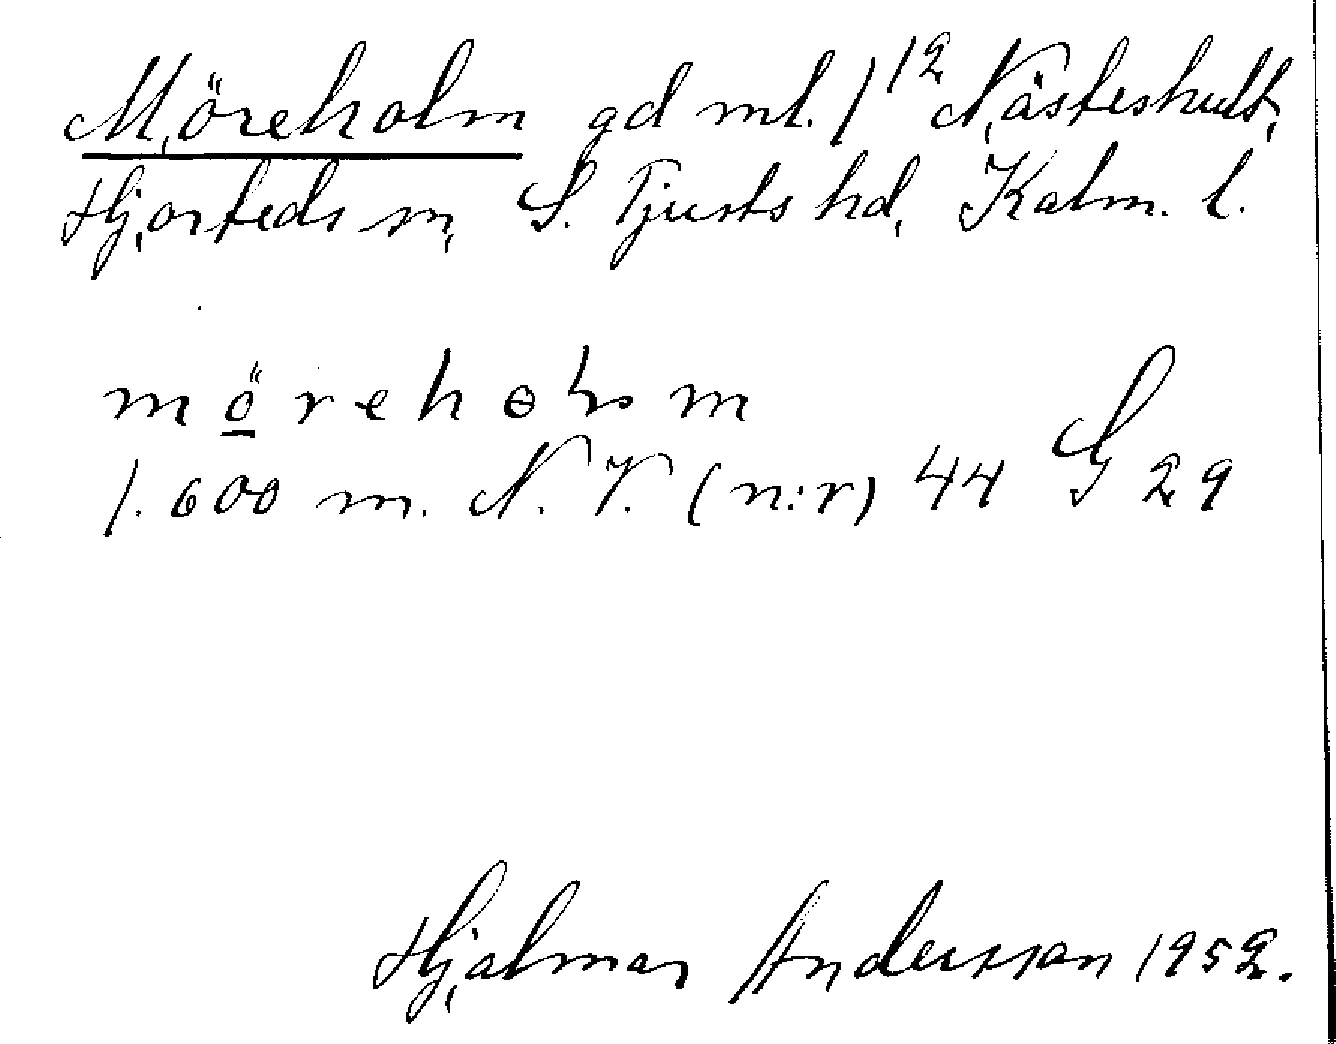 Möreholm gd ml. 1¹² Nästeshult,
Hjorteds sn, S. Tjusts hd, Kalm. l.
möreholm
1. 600 m. N. V. (n:r) 44 G 29
Hjalmar Andersson 1952.